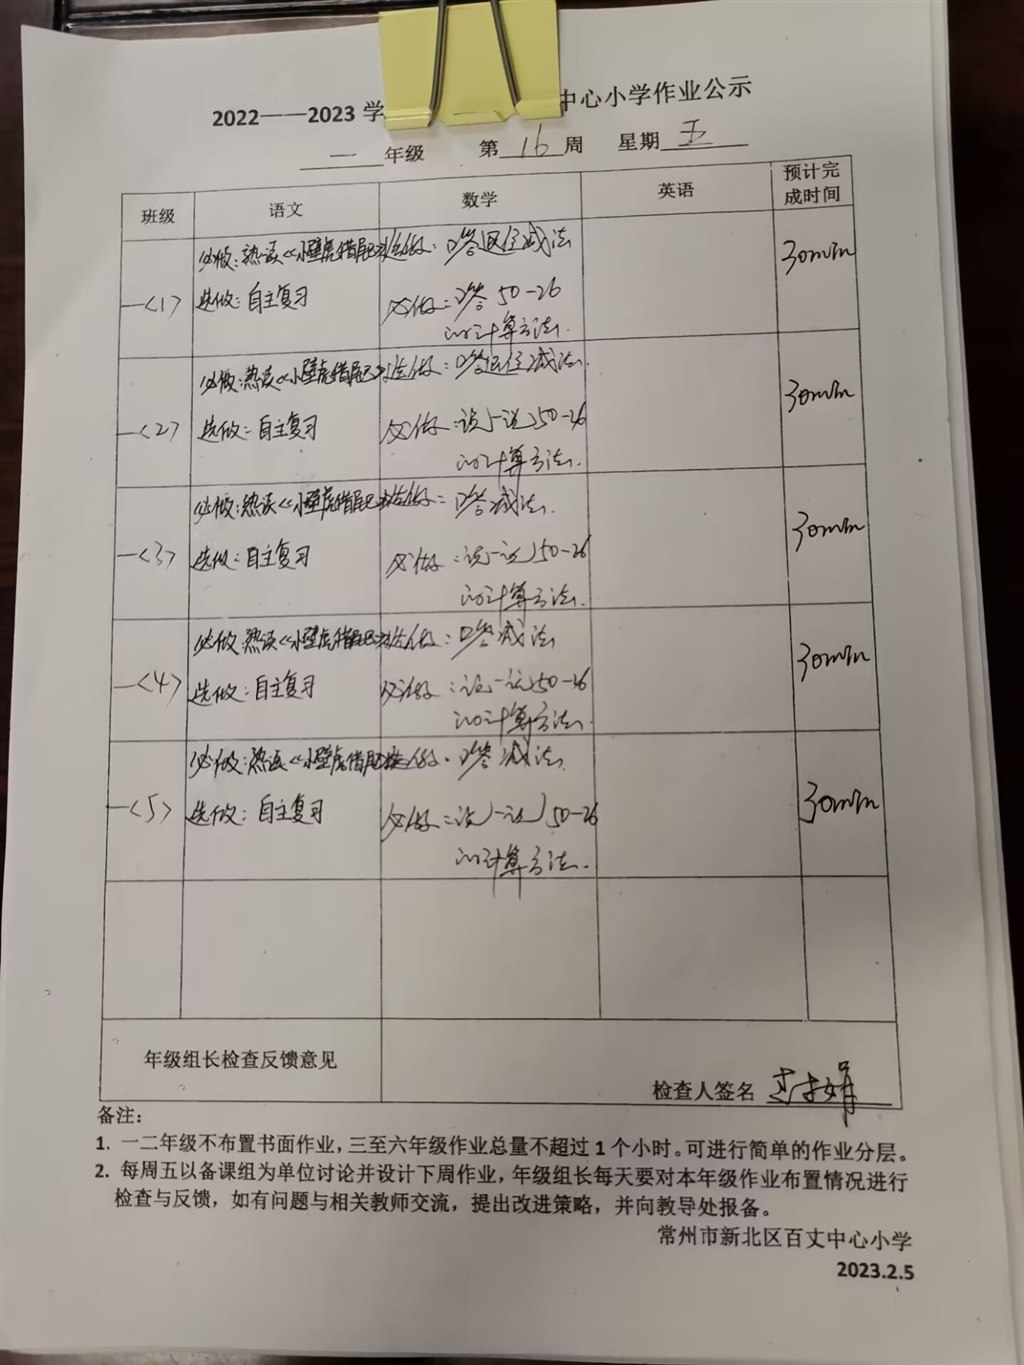 2022——2023 学 中心小学作业公示
一 年级 第 16 周 星期 五
班级 语文 数学 英语 预计完成时间
必做:熟读《小壁虎借尾巴》 选做:口答退位减法 30min
一<1> 选做:自主复习 必做:口答 50-26
的计算方法.
必做:熟读《小壁虎借尾巴》 选做:口答退位减法. 30min
一<2> 选做:自主复习 必做:说一说50-26
的计算方法.
必做:熟读《小壁虎借尾巴》 选做:口答减法. 30min
一<3> 选做:自主复习 必做:说一说50-26
的计算方法.
必做:熟读《小壁虎借尾巴》 选做:口答减法 30min
一<4> 选做:自主复习 必做:说一说50-26
的计算方法.
必做:熟读《小壁虎借尾 选做:口答减法. 30min
一<5> 选做:自主复习 必做:说一说50-26
的计算方法.
年级组长检查反馈意见
检查人签名
备注:
1. 一二年级不布置书面作业,三至六年级作业总量不超过 1 个小时。可进行简单的作业分层。
2. 每周五以备课组为单位讨论并设计下周作业,年级组长每天要对本年级作业布置情况进行
检查与反馈,如有问题与相关教师交流,提出改进策略,并向教导处报备。
常州市新北区百丈中心小学
2023.2.5